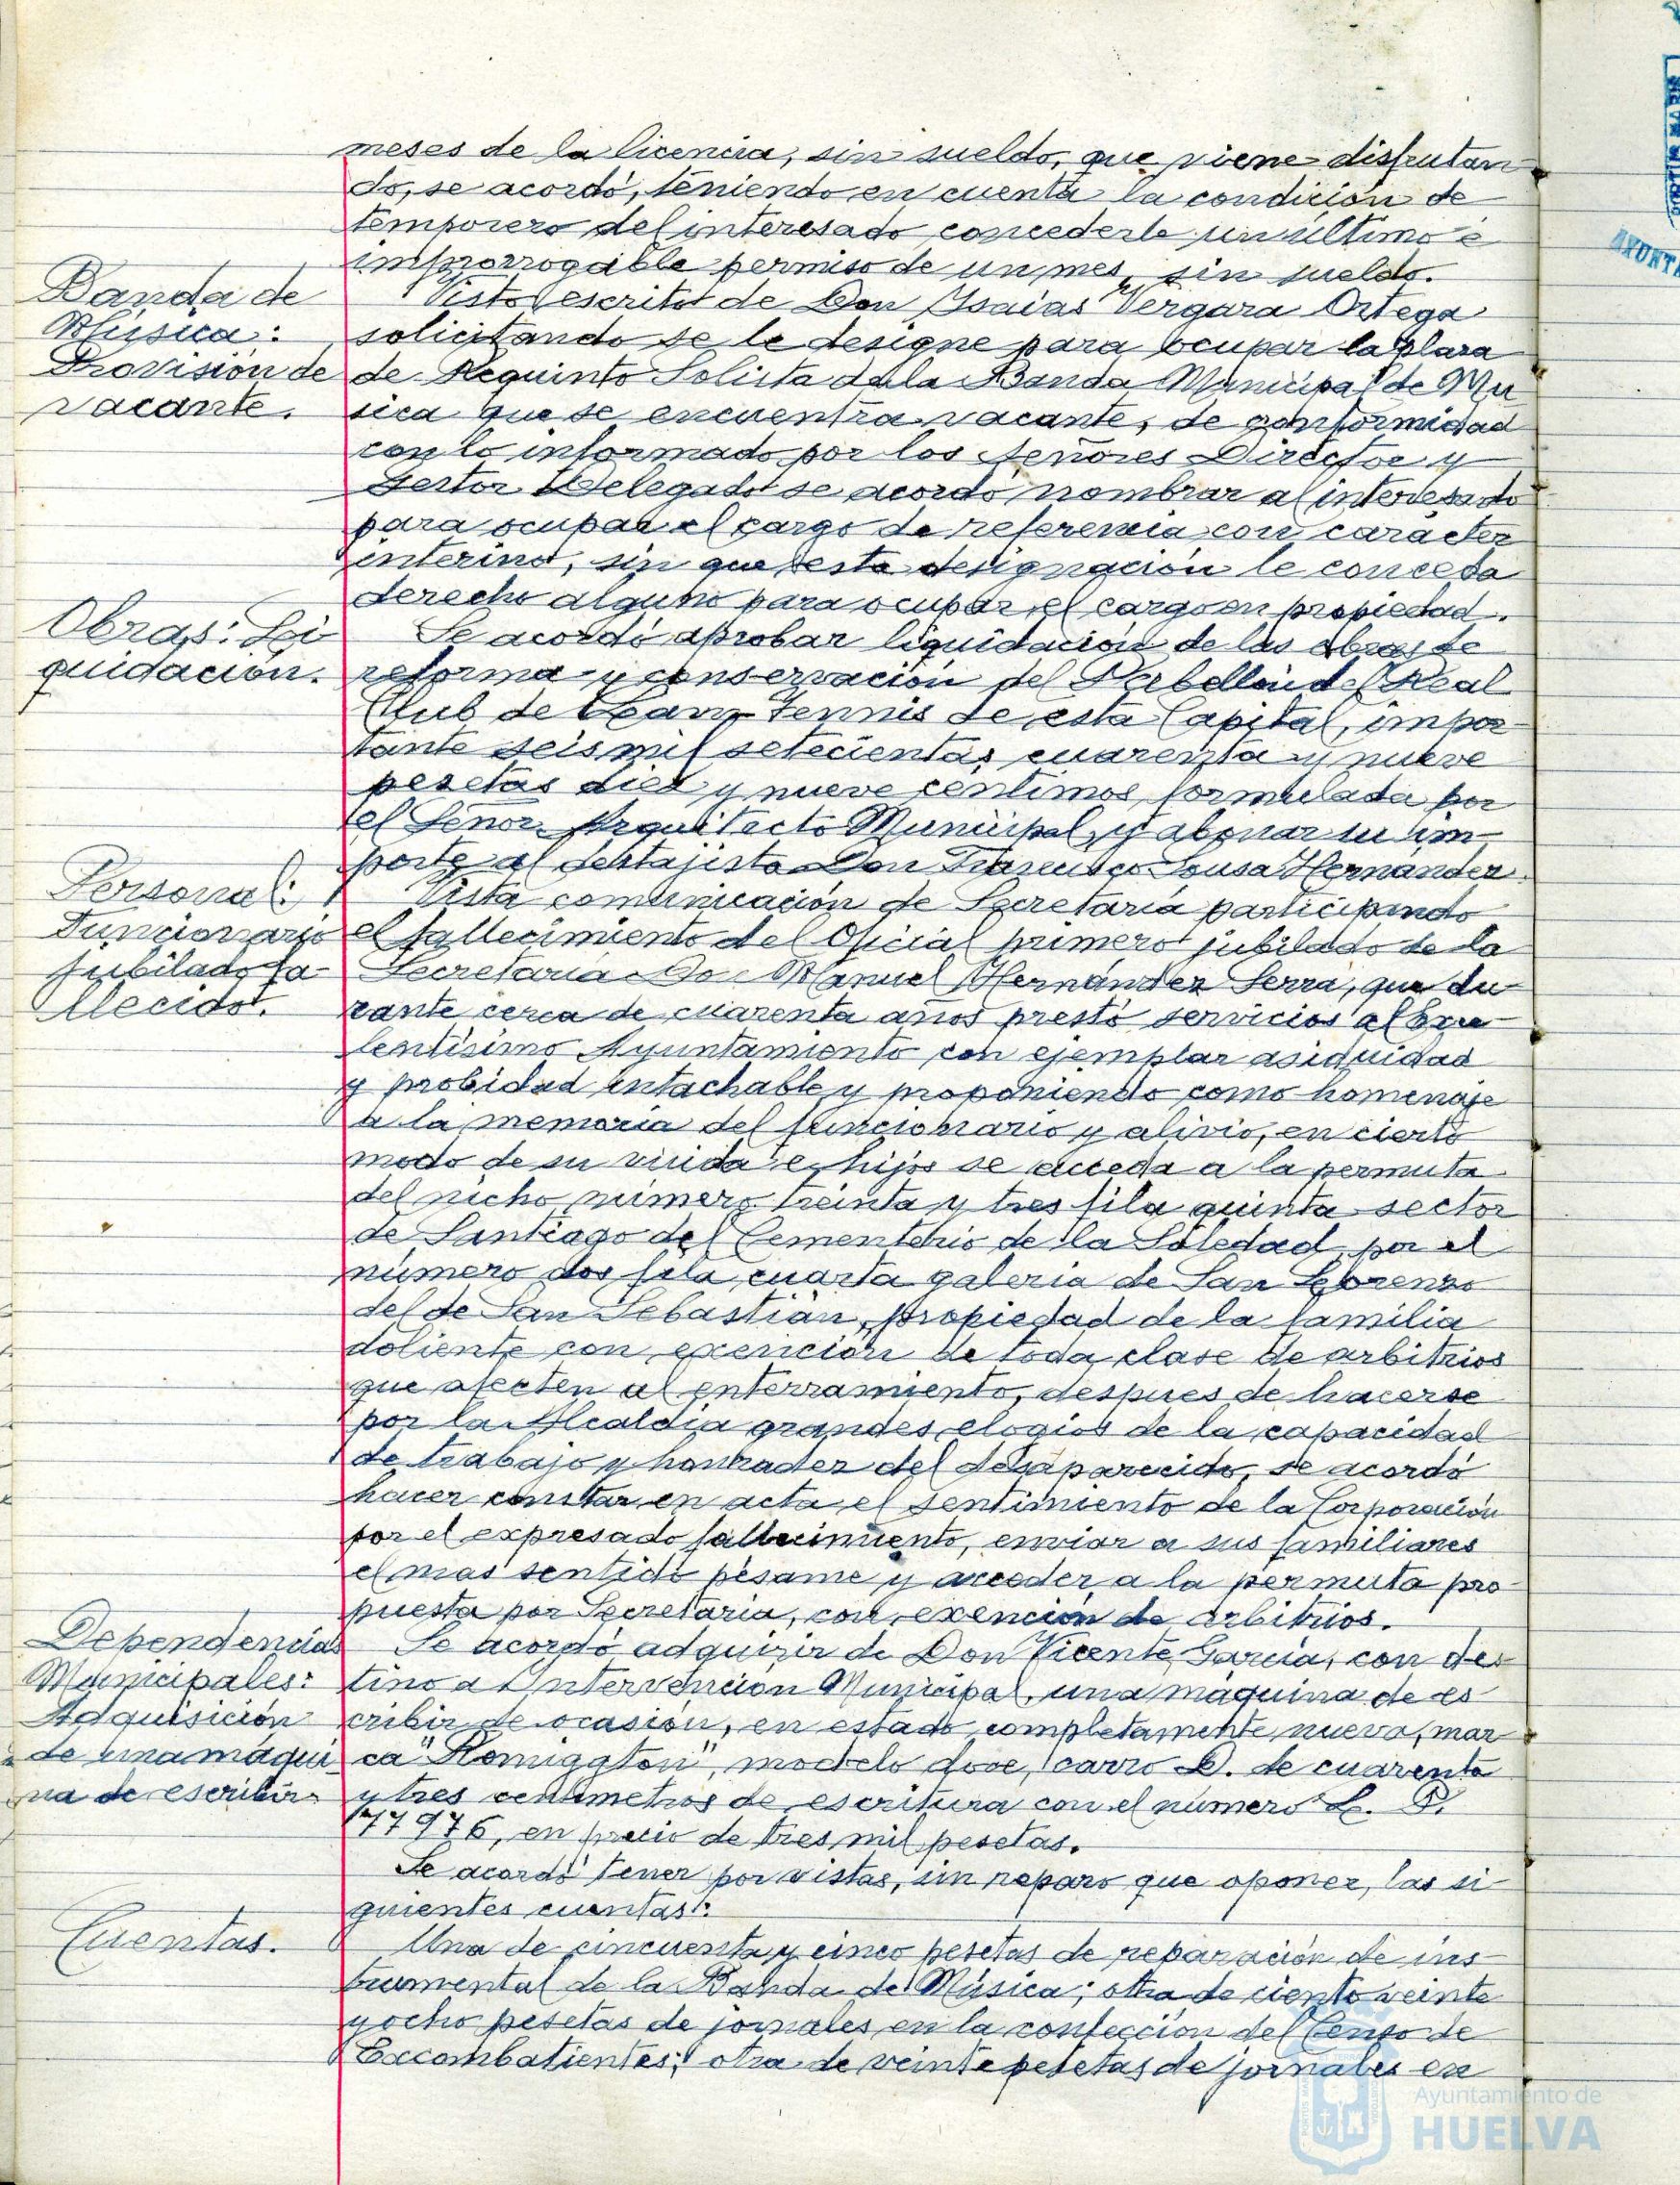 meses de la licencia, sin sueldo, que viene disfrutan
do, se acordó, teniendo en cuenta la condición de
temporero del interesado concederle un último é
improrrogable permiso de un mes, sin sueldo.
Banda de
Música:
Provisión de
vacante.
Visto escrito de Don Isaias Vergara Ortega
solicitando se le designe para ocupar la plaza
de Requinto Solista de la Banda Municipal de Mú
sica que se encuentra vacante, de conformidad
con lo informado por los Señores Director y
Gestor Delegado se acordó nombrar al interesado
para ocupar el cargo de referencia con carácter
interino, sin que esta designación le conceda
derecho alguno para ocupar el cargo en propiedad.
Obras: Li
quidación.
Se acordó aprobar liquidación de las obras de
reforma y conservación del Pabellón del Real
Club de Lawn-Tennis de esta Capital, impor-
tante seis mil setecientas cuarenta y nueve
pesetas diez y nueve centimos, formulada por
el Señor Arquitecto Municipal, y abonar su im-
porte al destajista Don Francisco Sousa Hernández.
Personal:
Funcionario
jubilado fa-
llecido.
Vista comunicación de Secretaría participando
el fallecimiento del Oficial primero jubilado de la
Secretaría Do Manuel Hernández Serra, que du-
rante cerca de cuarenta años prestó servicios al Exce-
lentísimo Ayuntamiento con ejemplar asiduidad
y probidad intachable y proponiendo como homenaje
a la memoria del funcionario y alivio, en cierto
modo de su viuda e hijos se acceda a la permuta
del nicho número treinta y tres fila quinta sector
de Santiago del Cementerio de la Soledad, por el
número dos fila cuarta galeria de San Lorenzo
del de San Sebastián, propiedad de la familia
doliente con exención de toda clase de arbitrios
que afecten al enterramiento, despues de hacerse
por la Alcaldía grandes elogios de la capacidad
de trabajo y honradez del desaparecido, se acordó
hacer constar en acta el sentimiento de la Corporación
por el expresado fallecimiento, enviar a sus familiares
el mas sentido pésame y acceder a la permuta pro-
puesta por Secretaría, con exención de arbitrios.
Dependencias
Municipales:
Adquisición
de una máqui
na de escribir.
Se acordó adquirir de Don Vicente García, con des-
tino a Intervención Municipal, una máquina de es
cribir de ocasión, en estado completamente nueva, mar
ca "Remiggton", modelo doce, carro D. de cuarenta
y tres centimetros de escritura con el número L. P.
77976, en precio de tres mil pesetas.
Se acordó tener por vistas, sin reparo que oponer, las si-
guientes cuentas:
Cuentas.
Una de cincuenta y cinco pesetas de reparación de ins-
trumental de la Banda de Música; otra de ciento veinte
y ocho pesetas de jornales en la confección del Censo de
Excombatientes; otra de veinte pesetas de jornales en
Ayuntamiento de
HUELVA